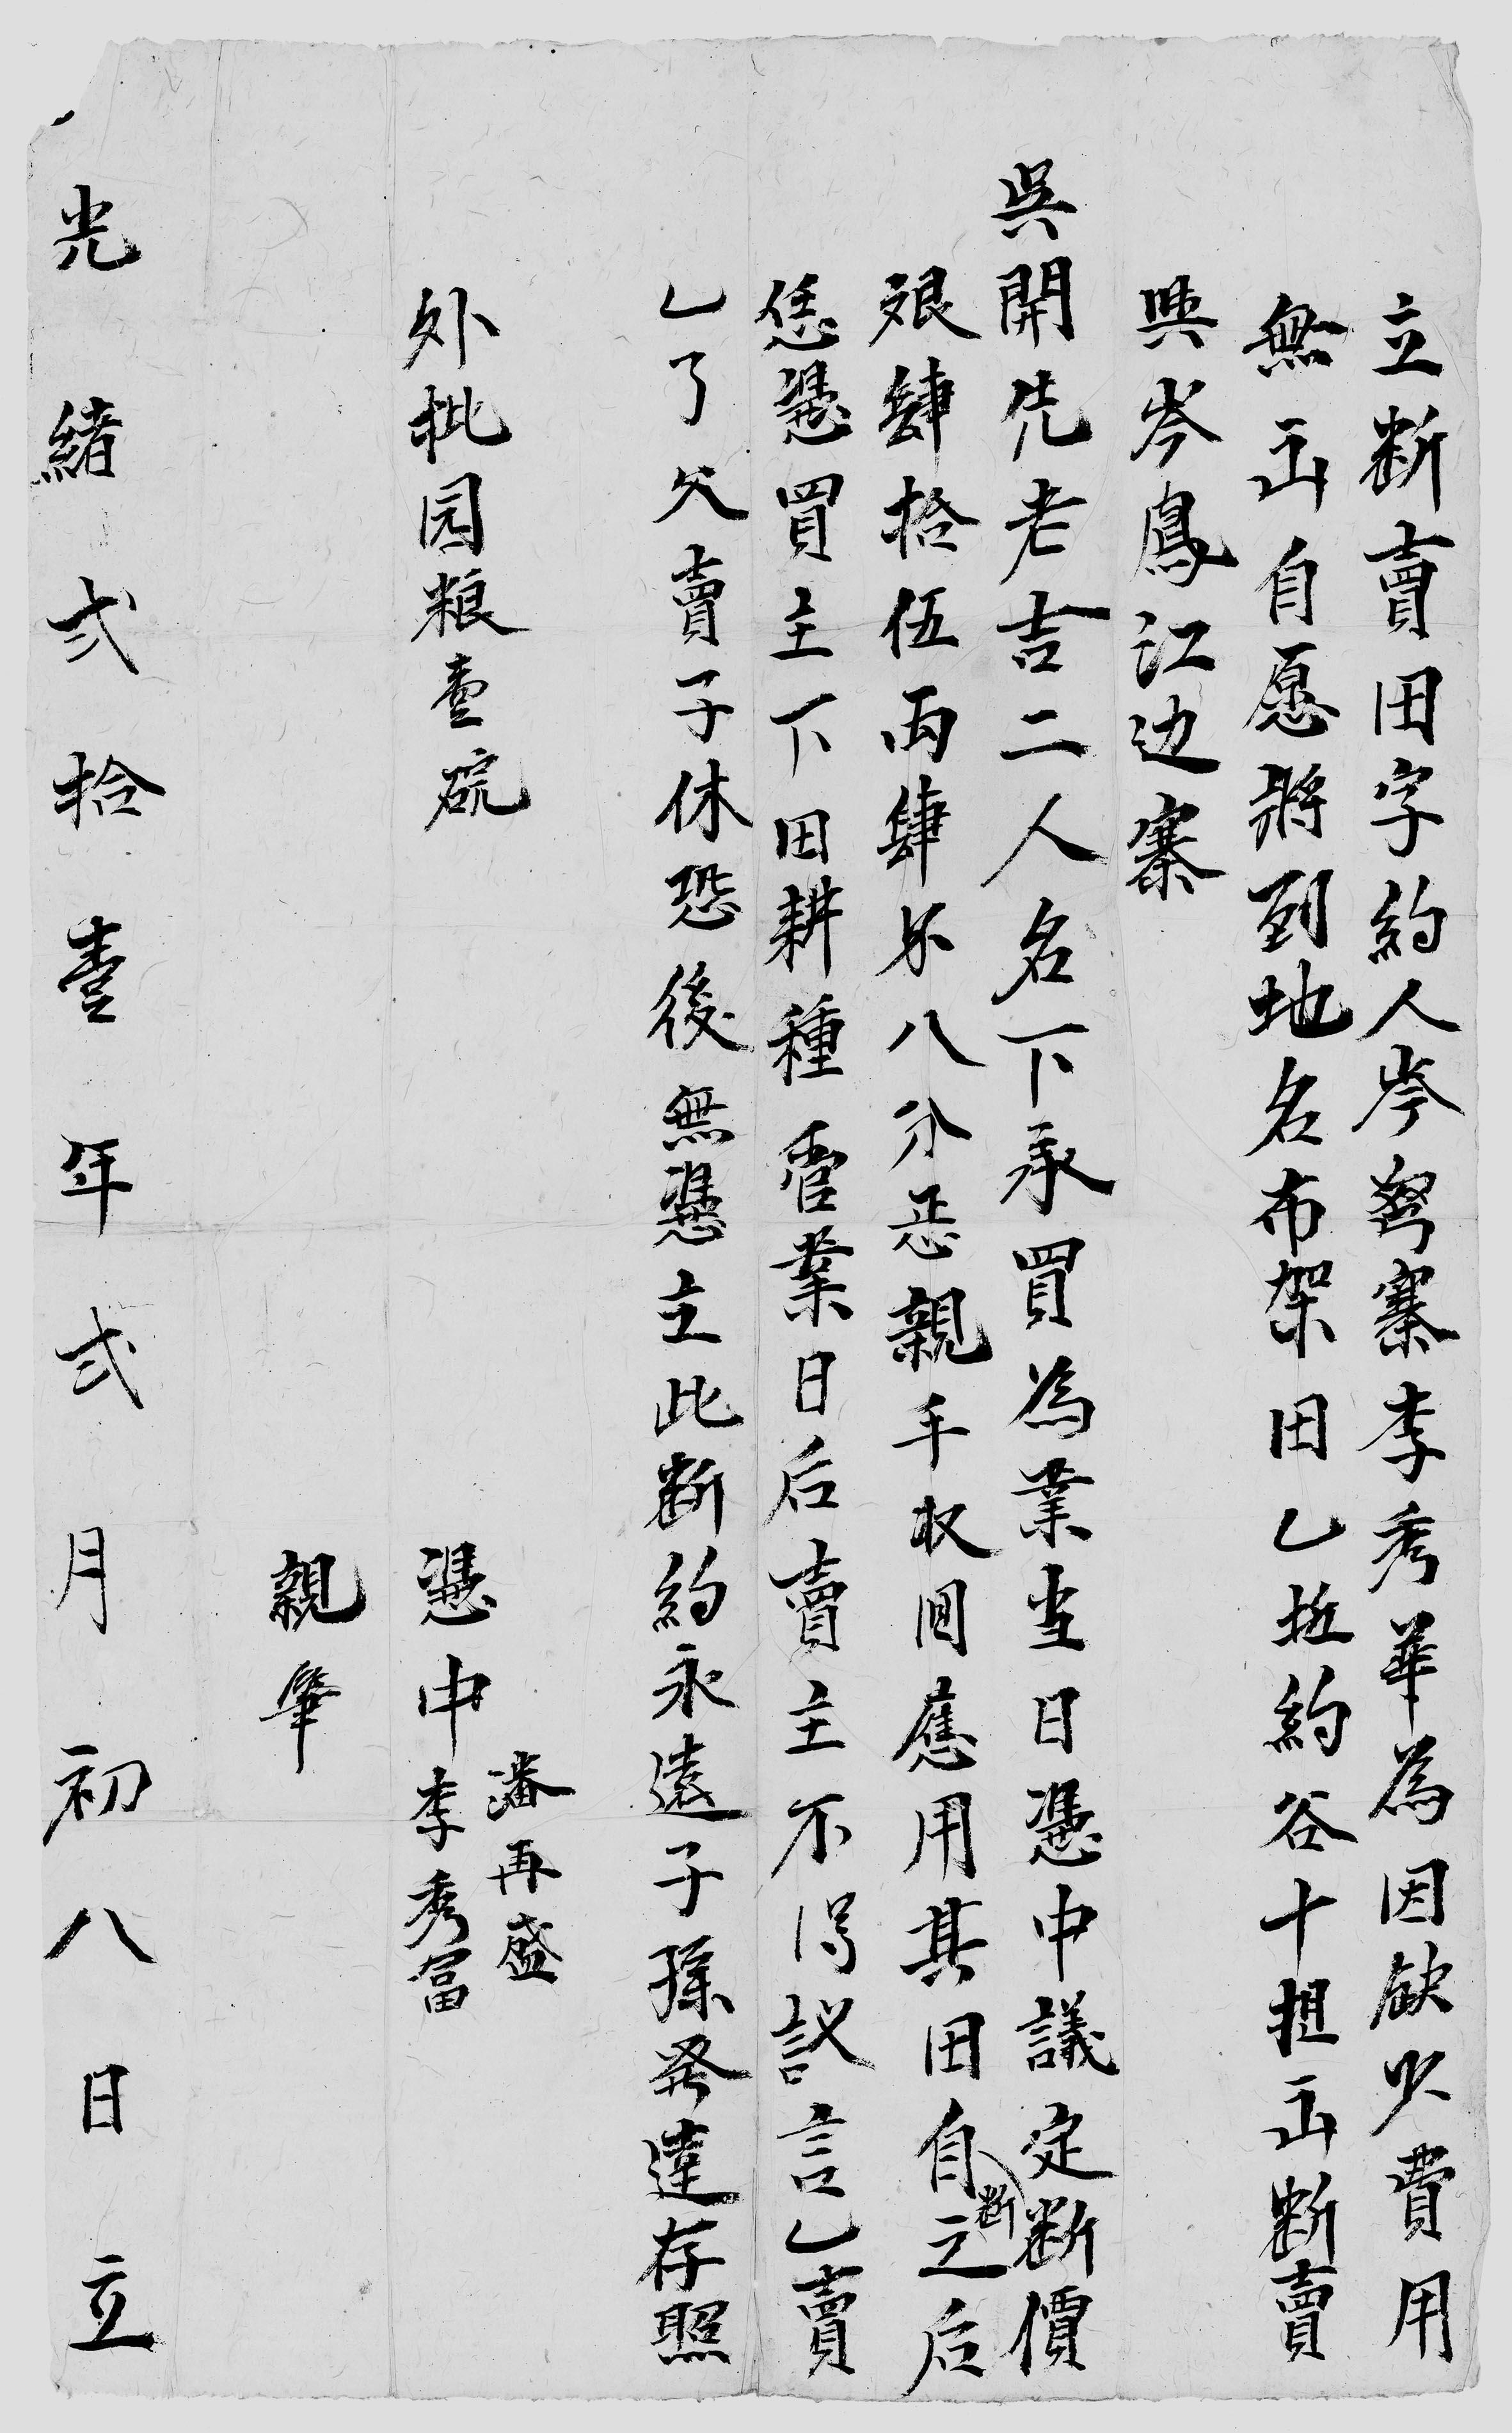 立断賣田字約人岑弩寨李秀華為因缺少費用
無出自愿將到地名布架田乙坵約谷十担出断賣
與岑鳳江边寨
吳開先老吉二人名下承買為業当日憑中議定断價
艰肆拾伍両肆分八分恶親手収囬應用其田自断之后
恁憑買主下田耕種管業日后賣主不得議言乙賣
乙了父賣子休恐後無憑立此断約永遠子孫発達存照
外批园粮壹碗
憑中潘再盛
李秀富
親筆
光緒弍拾壹年弍月初八日立